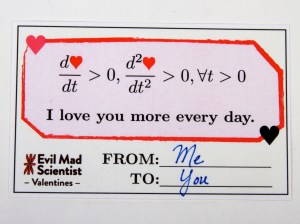 d♥/dt > 0, d²♥/dt² > 0, ∀t > 0
I love you more every day.
Evil Mad
Scientist
– Valentines –
FROM: Me
TO: You